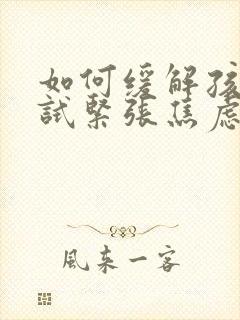 如何缓解孩
试紧张焦虑
風来一客